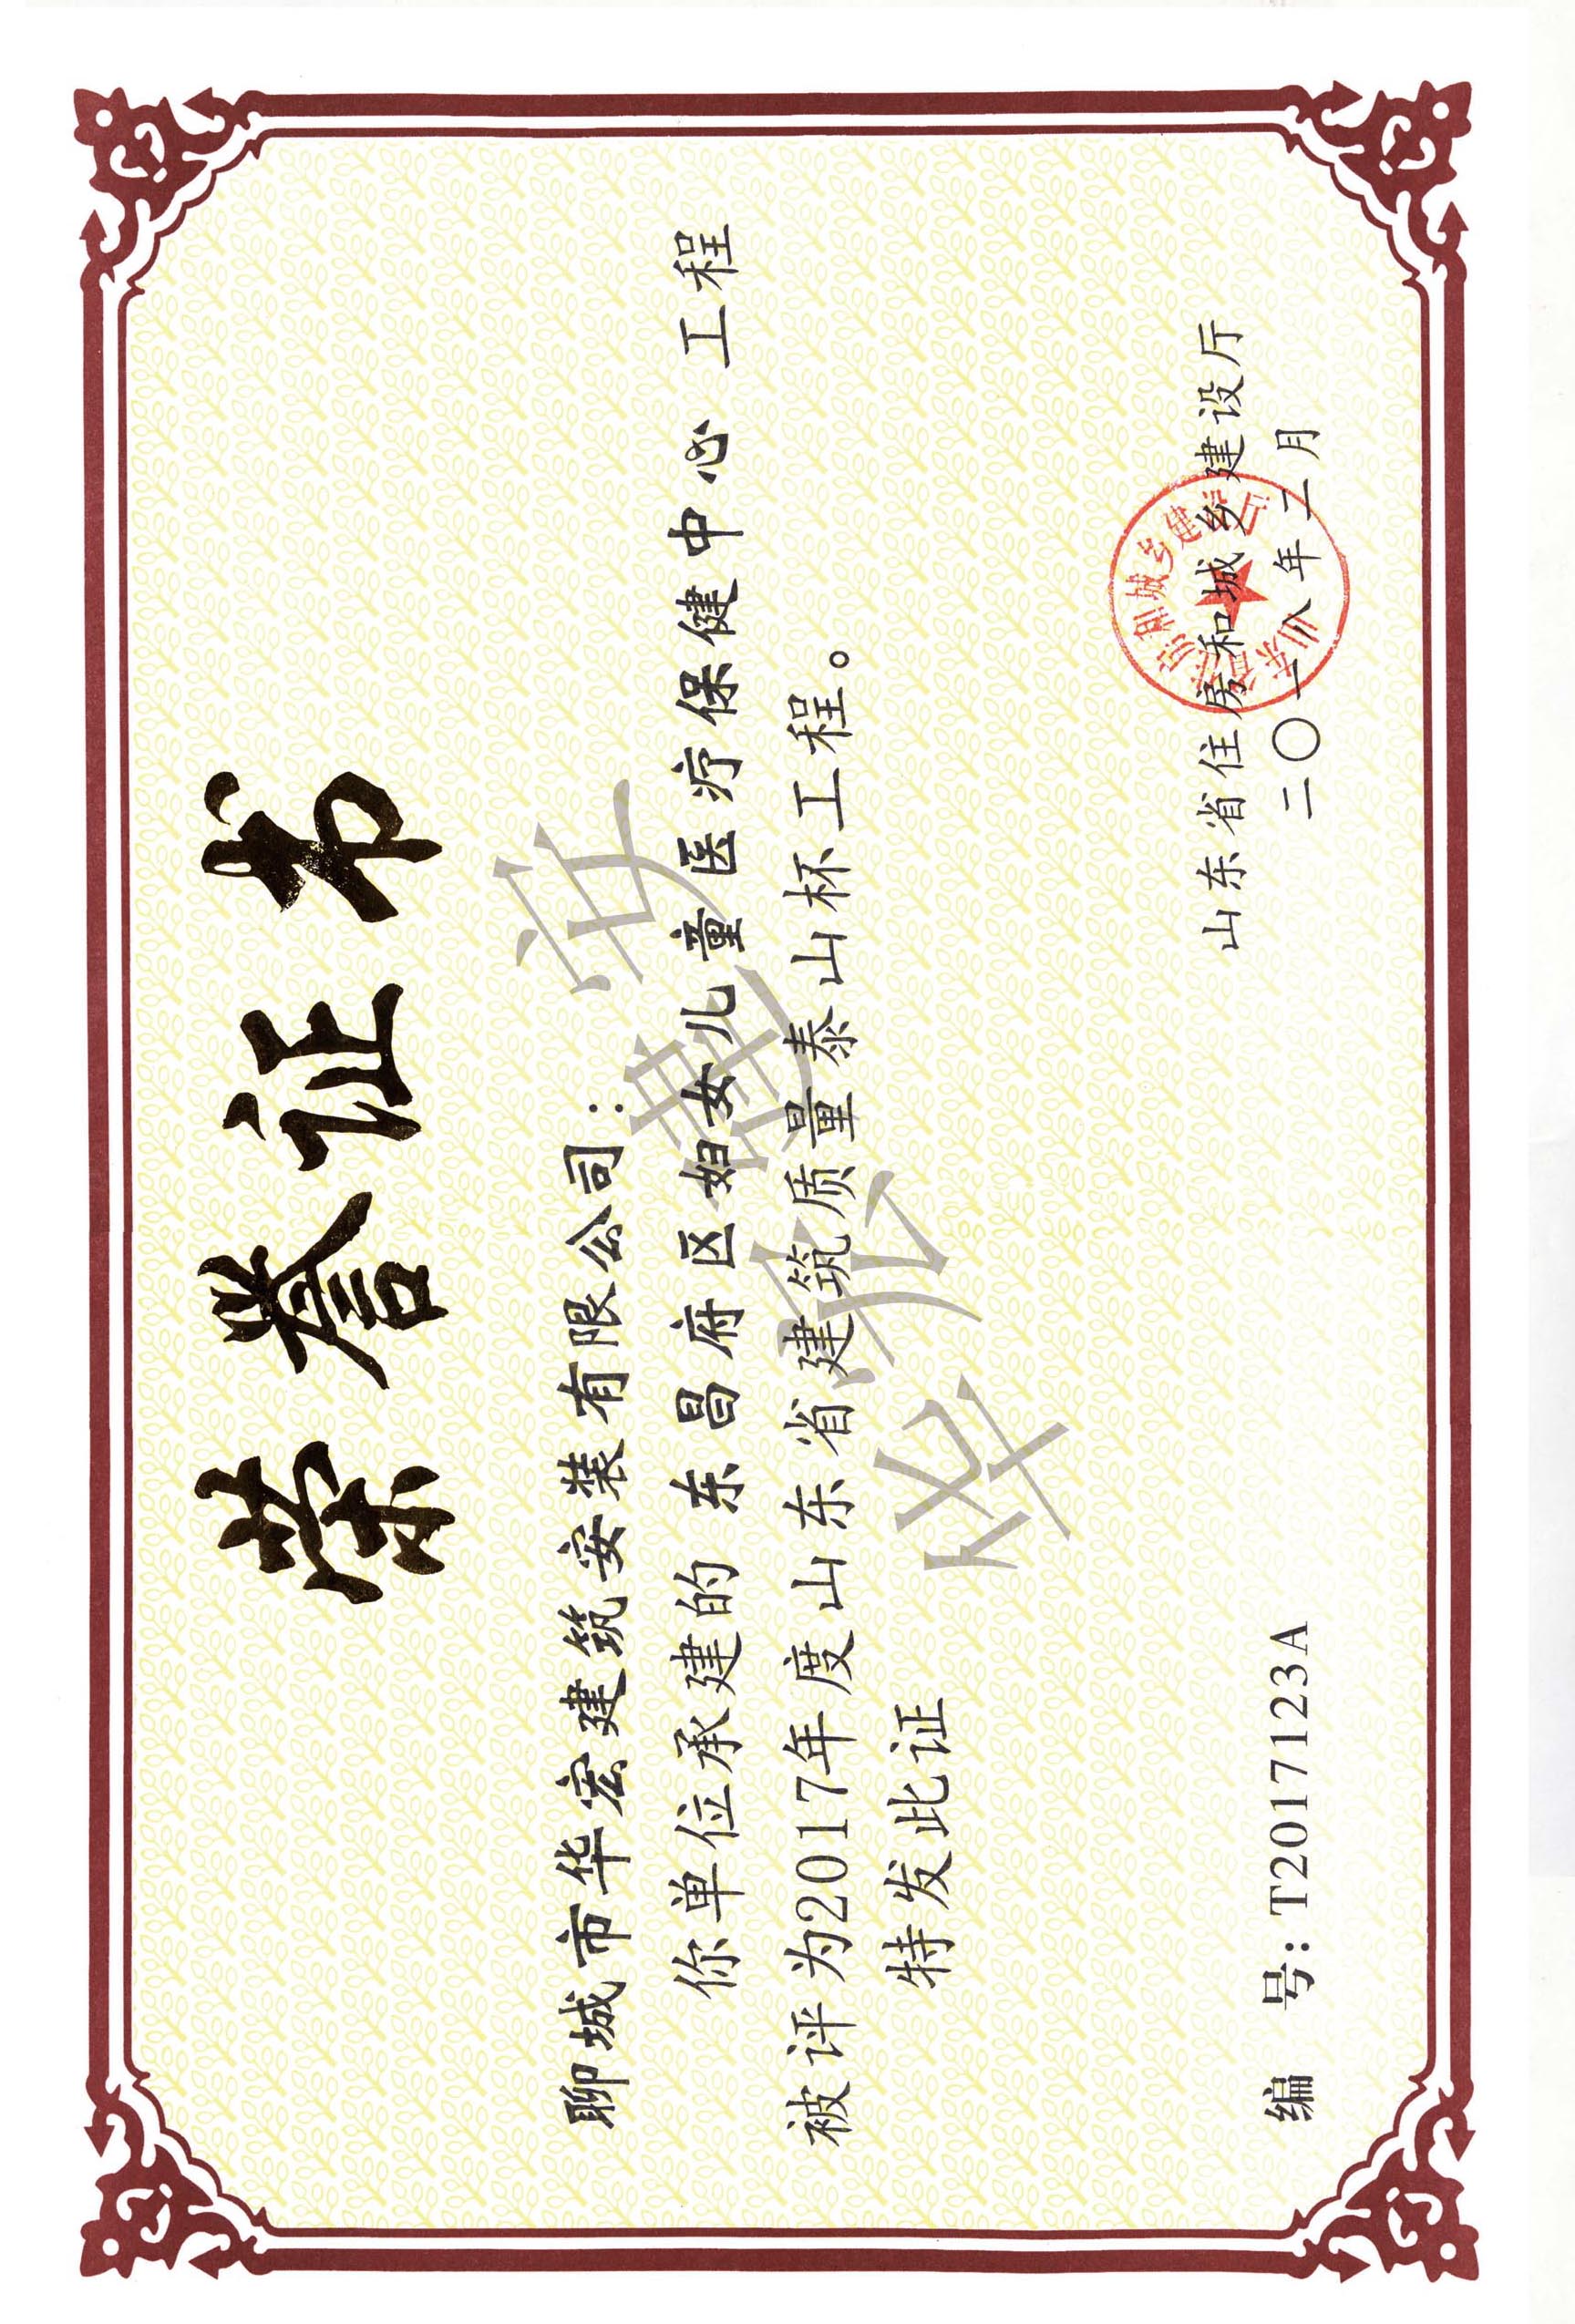 荣誉证书
聊城市华宏建筑安装有限公司：
你单位承建的 东昌府区妇女儿童医疗保健中心 工程
被评为2017年度山东省建筑质量泰山杯工程。
特发此证
山东省住房和城乡建设厅
二〇一八年二月
编 号：T2017123A
山东省住房和城乡建设厅